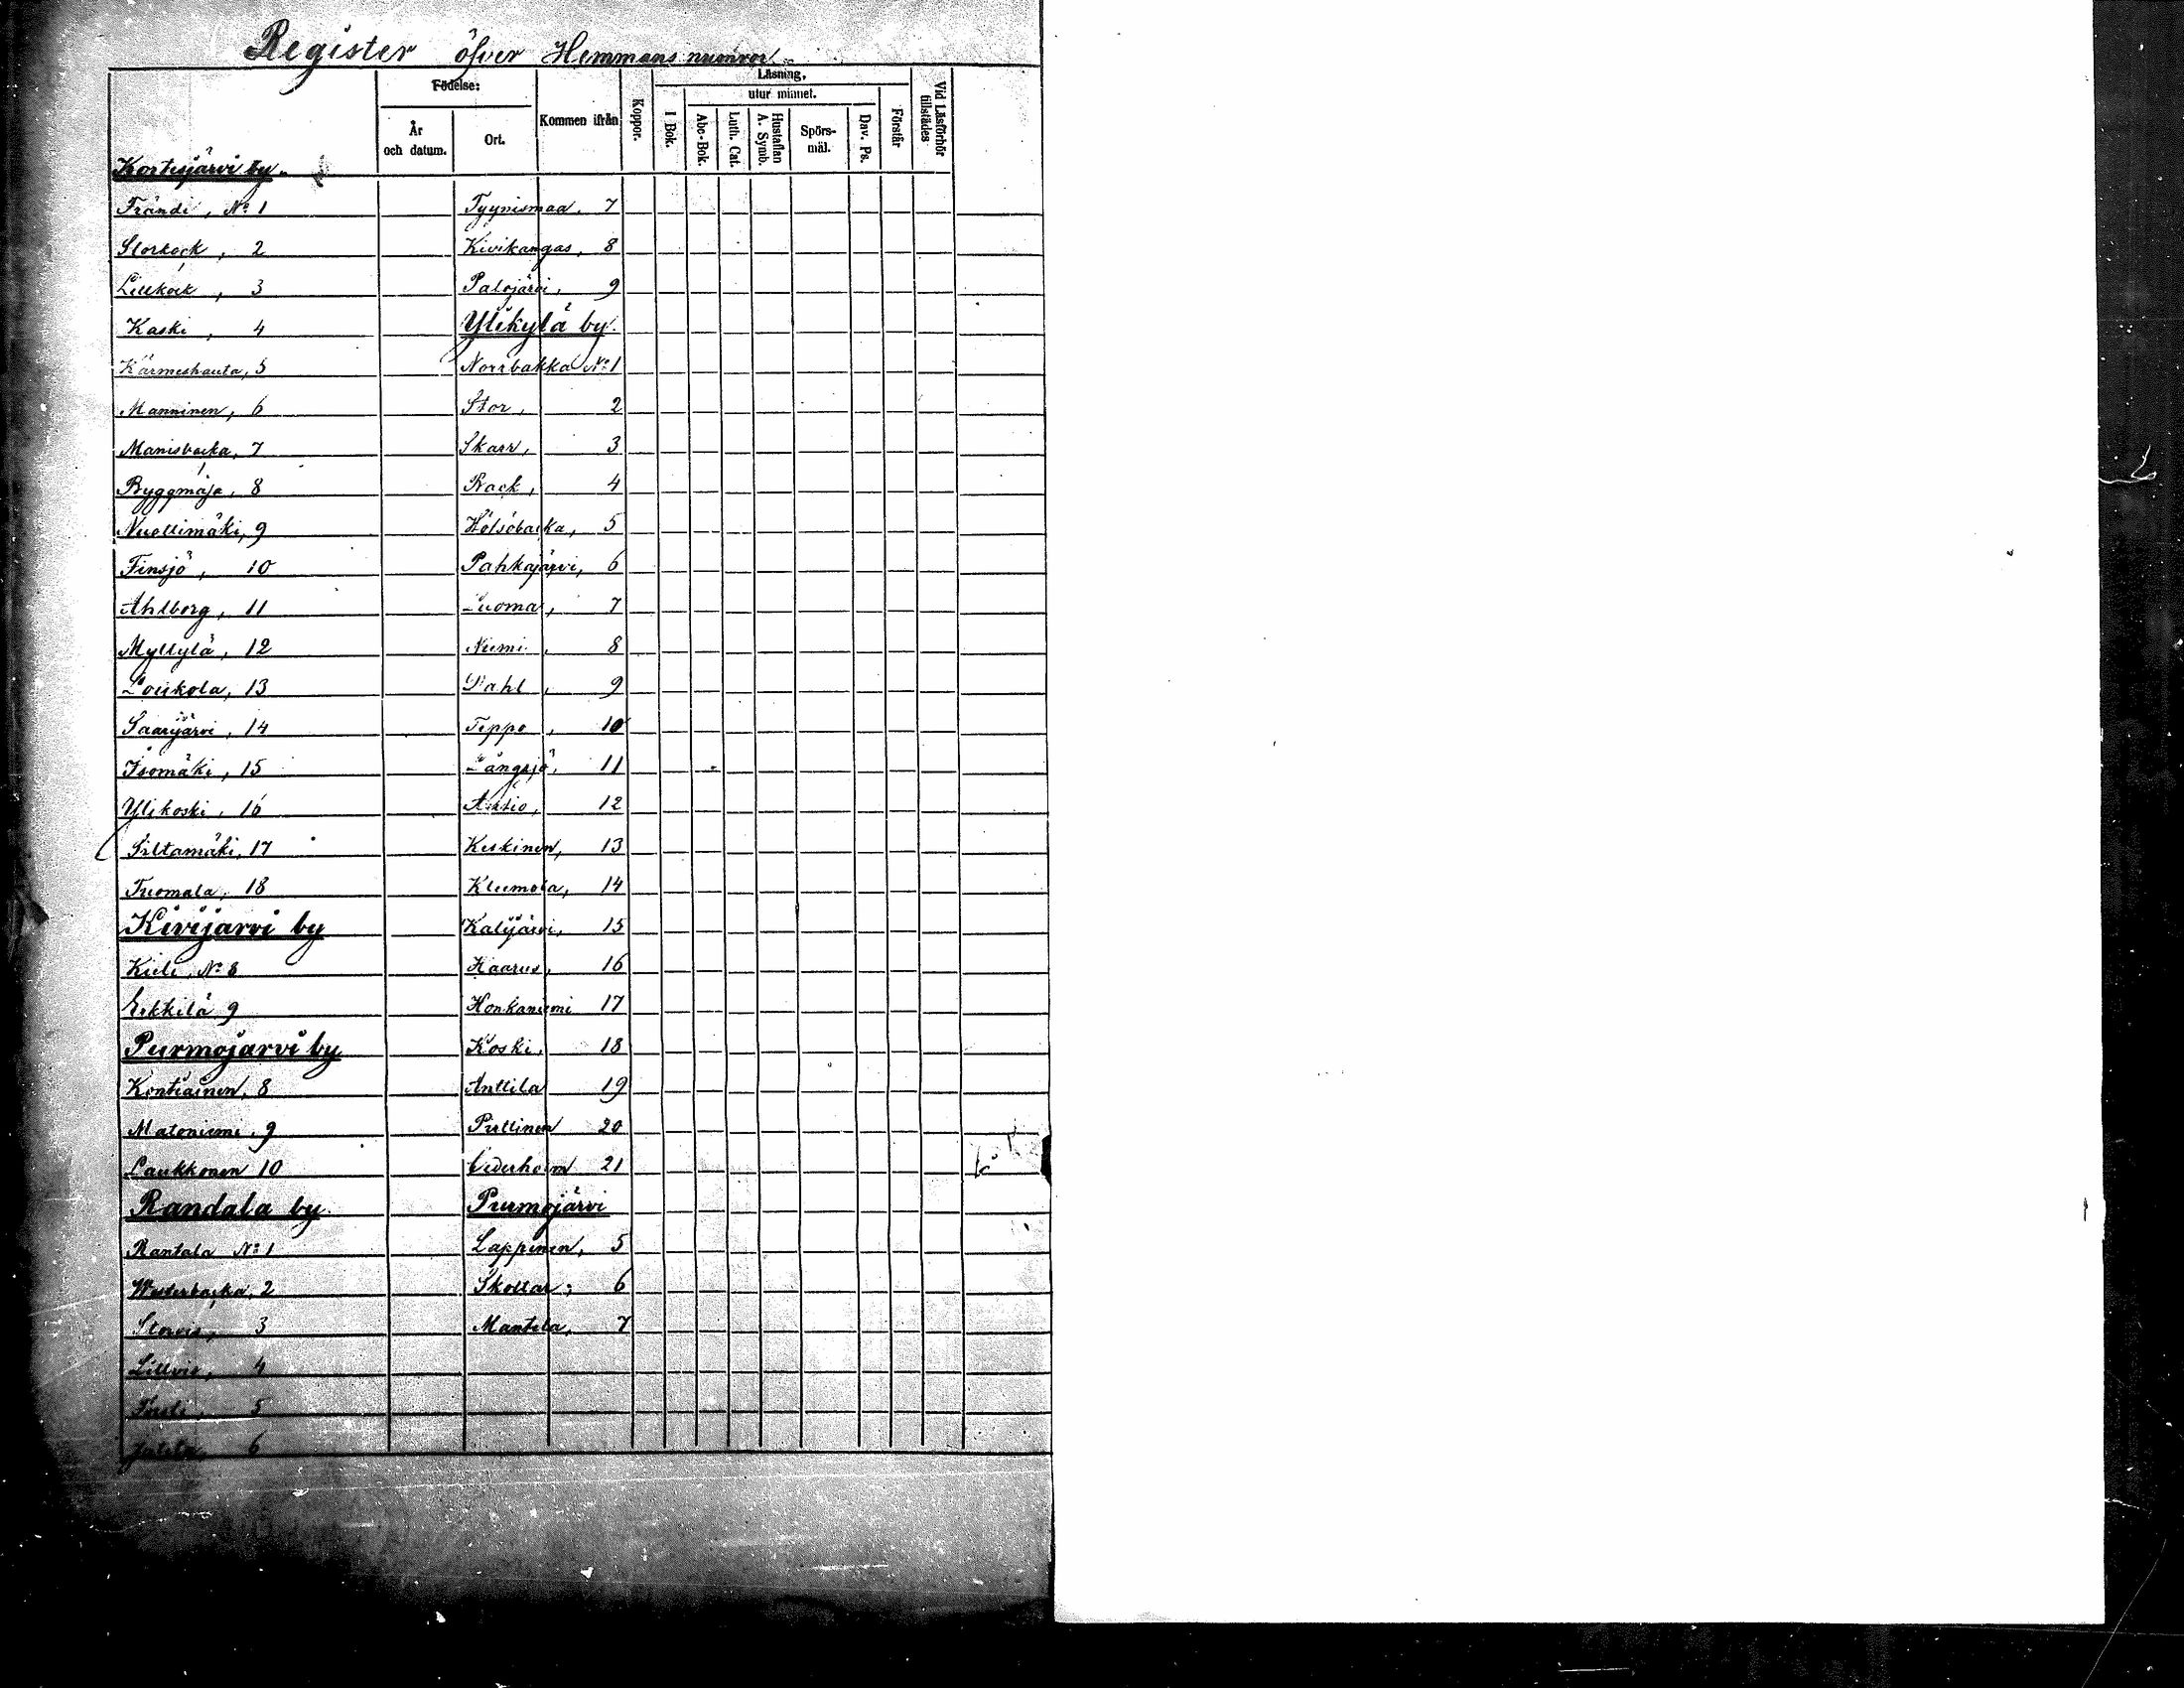 Register öfver Hemmans numror
Födelse:
År och datum.
Ort.
Kommen ifrån
Koppor.
Läsning,
utur minnet.
I Bok.
Abc-Bok.
Luth. Cat.
Hustaflan A. Symb.
Spörs-mål.
Dav. Ps.
Förstår
Vid Läsförhör tillstädes
Kortesjärvi by.
Frändi, No 1
Storkock, 2
Lillkock, 3
Kaski, 4
Kärmeshauta, 5
Manninen, 6
Manisbacka, 7
Byggmäja, 8
Nuollimäki, 9
Finsjö, 10
Ahlberg, 11
Myllylä, 12
Loukola, 13
Saarijärvi, 14
Isomäki, 15
Ylikoski, 16
Siltamäki, 17
Tuomala, 18
Kivijärvi by
Kieli, No 8
Erkkilä 9
Purmojärvi by
Kontiainen, 8
Matoniemi, 9
Laukkonen 10
Randala by
Rantala No 1
Westerbacka, 2
Storvis, 3
Lillvis, 4
Försti, 5
6
Tyynismaa, 7
Kivikangas, 8
Palojärvi, 9
Ylikylä by.
Norrbakka No 1
Stor, 2
Skarr, 3
Back, 4
Hölsöbacka, 5
Pahkajärvi, 6
Luoma, 7
Niemi, 8
Dahl, 9
Teppo, 10
Långsjö, 11
12
Keskinen, 13
Kleemola, 14
Kalijärvi, 15
Kaarus, 16
Honkaniemi 17
Koski, 18
Anttila 19
Pirttinen 20
Cederholm 21
Purmojärvi
Lappinen, 5
Skottar, 6
Mantela, 7